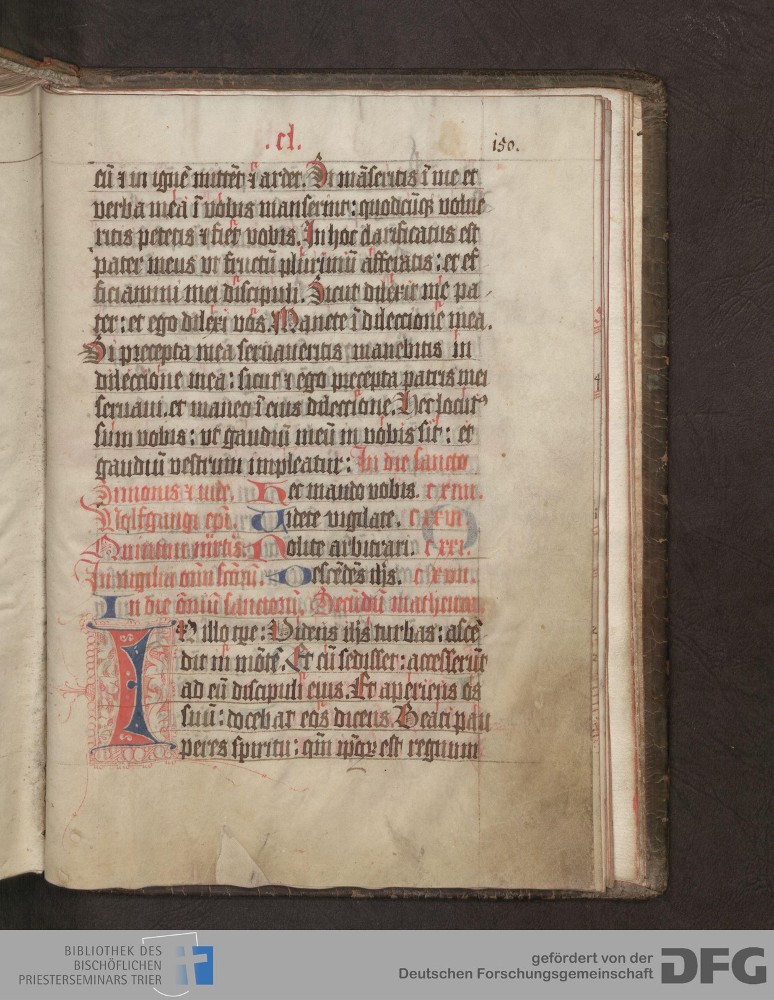 .cl.
150.
eū ⁊ in ignē mittēt ⁊ ardet. Si māseritis ī me et
verba mea ī vobis manserint: quodcūqꝫ volue
ritis petetis ⁊ fiet vobis. In hoc clarificatus est
pater meus vt fructū plurimū afferatis: et ef
ficiamini mei discipuli. Sicut dilexit me pa
ter: et ego dilexi vos. Manete ī dilectione mea.
Si precepta mea servaueritis manebitis in
dilectione mea: sicut ⁊ ego precepta patris mei
servaui. et maneo ī eius dilectione. Hec locutꝰ
sum vobis: vt gaudiū meū in vobis sit: et
gaudiū vestrum impleatur: In die sancto
Simonis ⁊ iude. Hec mando vobis.
Wolfgangi epi. Videte vigilate.
Quintini mrtis. Nolite arbitrari. cxxi.
In vigilia oīm sctōrū. Descēdēs ihs. cxvii.
In die ōniū sanctorū. Secūdū matheum.
IN illo tpe: Videns ihs turbas: ascē
dit in mōtē. Et cū sedisset: accesserūt
ad eū discipuli eius. Et aperiens os
suū: docebat eos dicens. Beati pau
peres spiritu: qm ipoꝝ est regnum
BIBLIOTHEK DES
BISCHÖFLICHEN
PRIESTERSEMINARS TRIER
gefördert von der
Deutschen Forschungsgemeinschaft
DFG